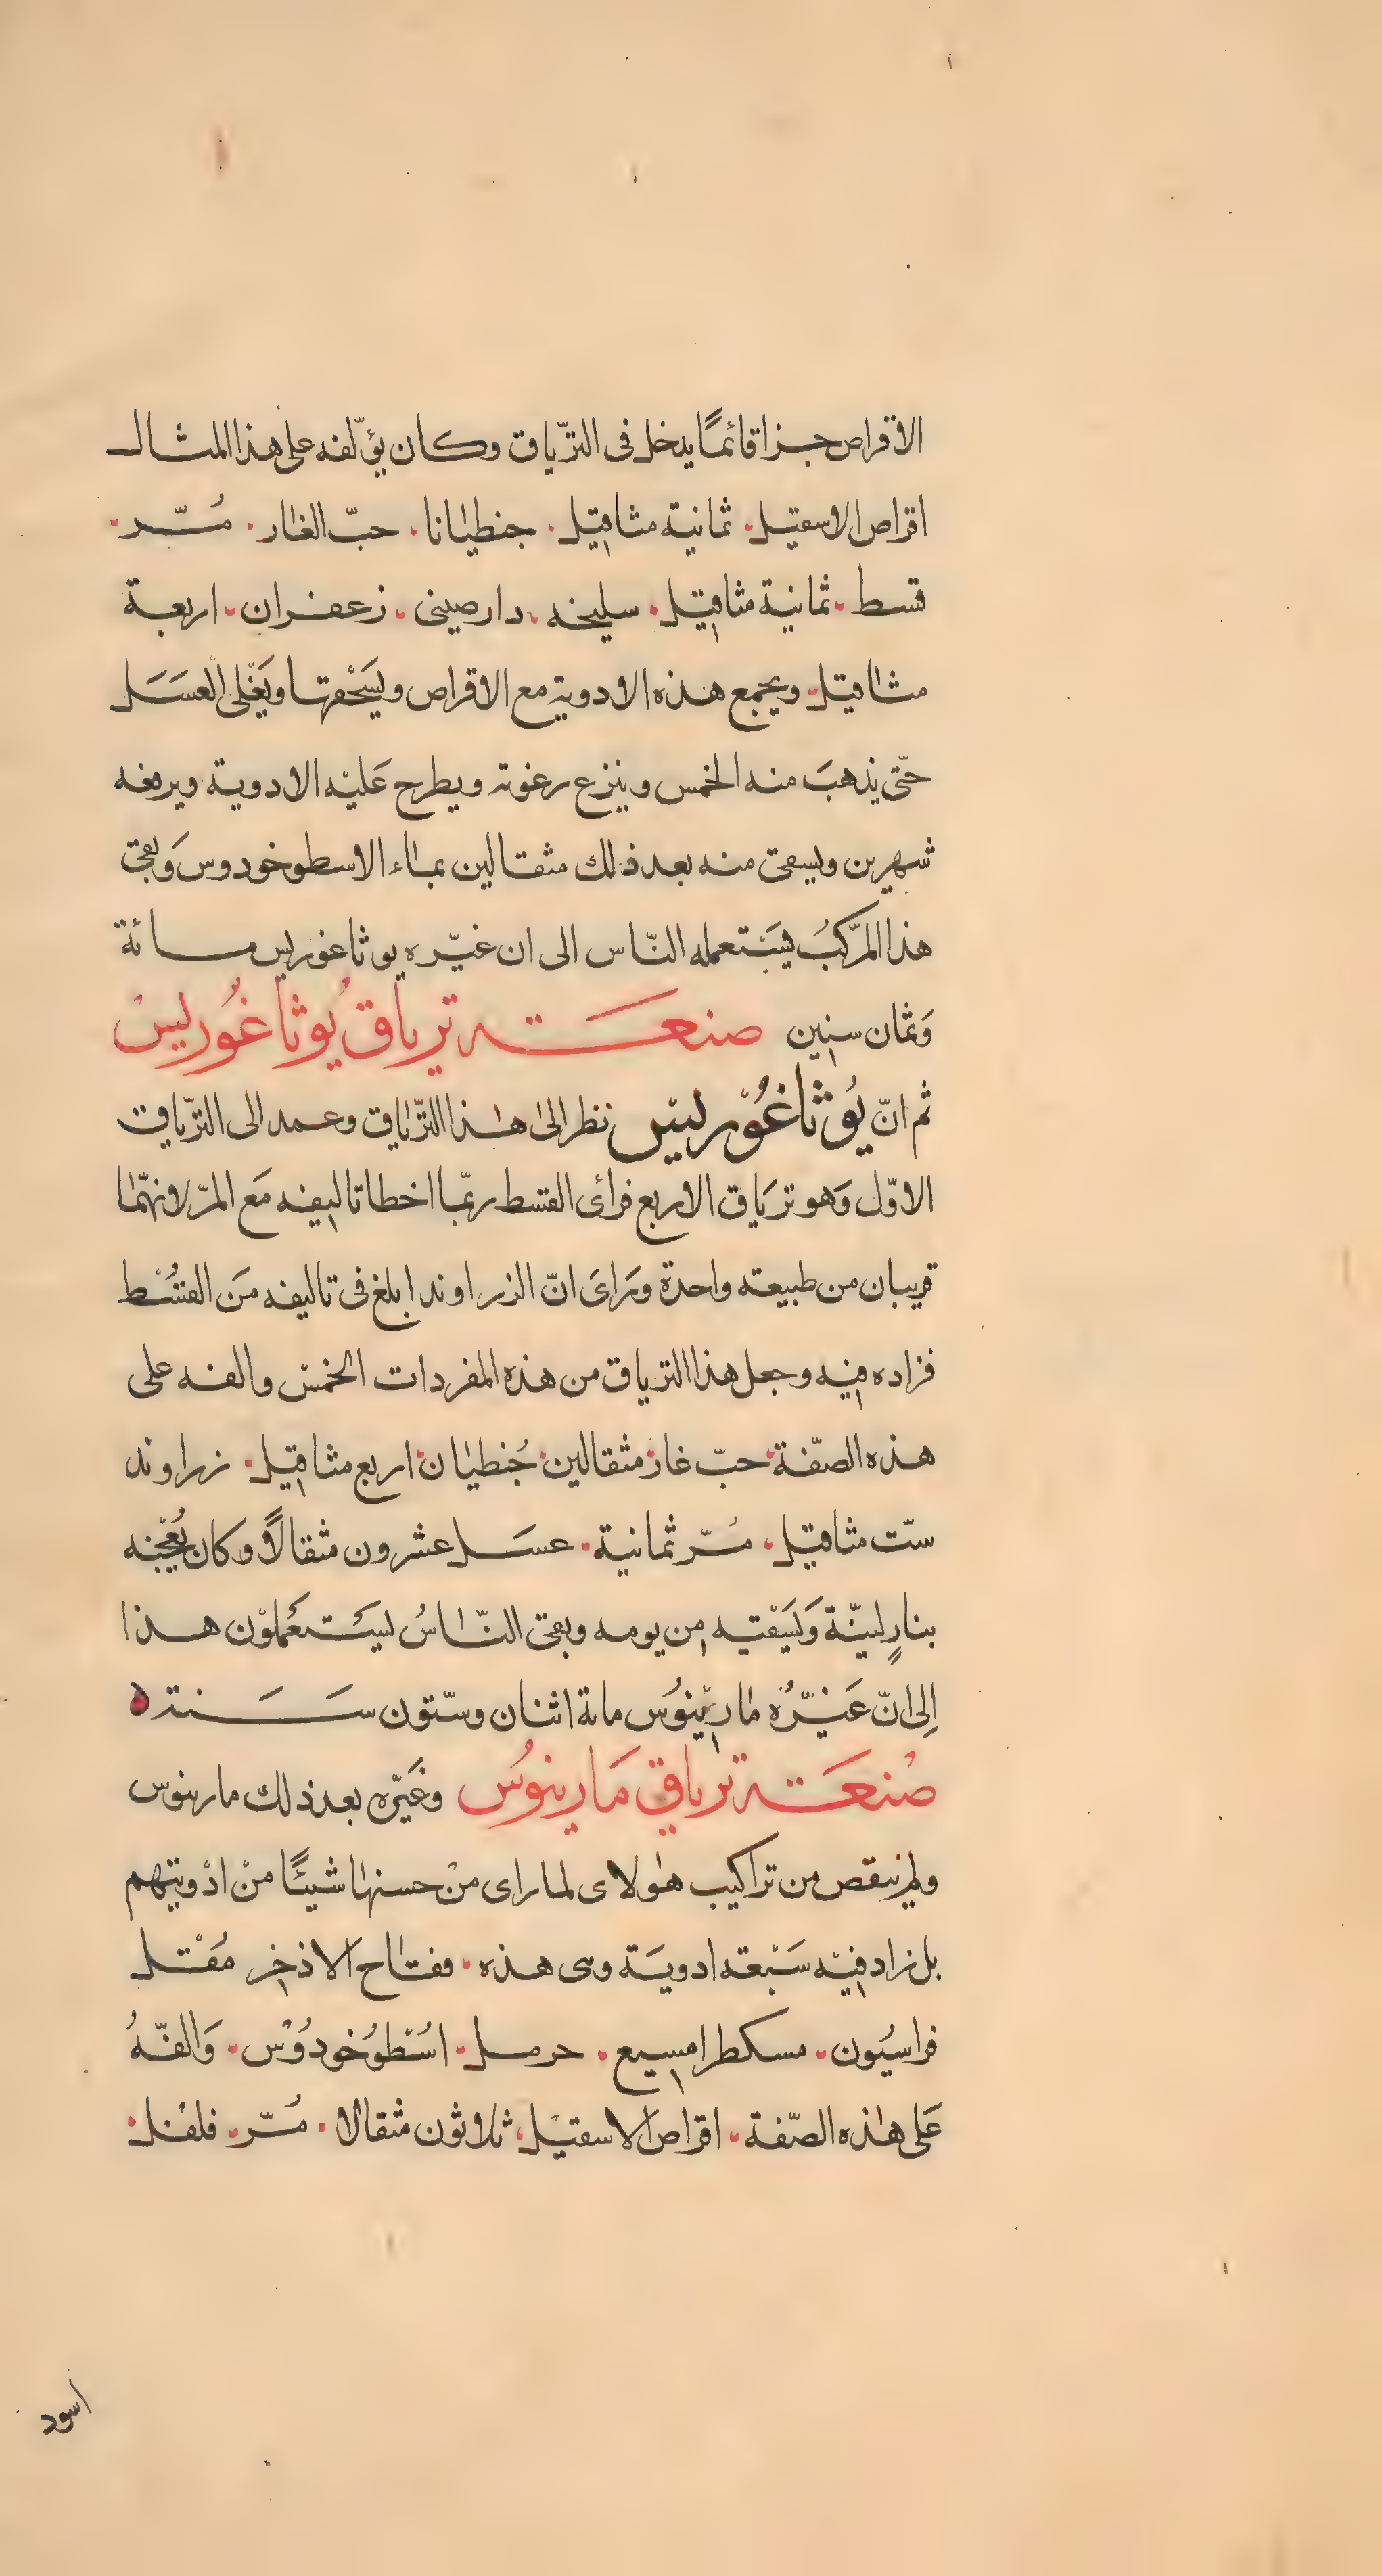 الاقراص جزا قائمًا يدخل فى الترّياق وكان يؤلّفه على هذا المثال
اقراص الاسقيل ثمانية مثاقيل جنطيانا حبّ الغار مُرّ
قسط ثمانية مثاقيل سليخه دارصينى زعفران اربعة
مثاقيل ويجمع هذه الادوية مع الاقراص ويَسْحقها ويَغْلى العسَل
حتّى يذهبَ منه الخمس وينزع رغوته ويطرح عَليْه الادوية ويرفعه
شهرين ويسقى منه بعد ذلك مثقالين بماء الاسطوخودوس وَبقى
هذا المرّكبُ يسَتعمله النّاس الى ان غيّره يوثاغوريس مائة
وَثمان سنين صنعَة ترياق يُوثاغُوريسْ
ثم انّ يُوثاغُوْريسْ نظر الىٰ هٰذا الترّياق وعمد الى الترّياق
الاوّل وَهو تريَاق الاربع فرأى القسط ربّما اخطا تاليفه مَع المرّ لانهّما
قريبان من طبيعته واحدة ورَاىَ انّ الزراوند ابلغ فى تاليفه مَن القسُْط
فزاده فيه وجعل هذا الترياق من هذه المفردات الخمسْ والفه على
هذه الصّفة حبّ غار مثقالين جُنطيان اربع مثاقيل زراوند
ستّ مثاقيل مُرّ ثمانية عسَل عشرون مثقالاً وكان يُعْجنه
بنارٍ لينّة وَيَسَقيه من يومه وبقى النّاسُ يسَتعَملوْن هذا
اِلى انّ غَيّرُه مارينوُس ماة اثنان وستّون سَنَة
صْنعَة ترياق مَارينوُس وغَيّره بعد ذلك مارينوس
ولم ينقص من تراكيب هٰولاى لما راى منْ حسنها شيئًا منْ ادْويتهم
بل زاد فيْه سَبْعة ادويَة وهى هذه فقاح الاذخر مُقْل
فراسيُون مسكطرامسيع حرمل اسُْطوُخودُوْس وَالفّهُ
عَلى هٰذه الصّفة اقراص الاسقيْل ثلاثون مثقالا مُرّ فلفْل
اسود